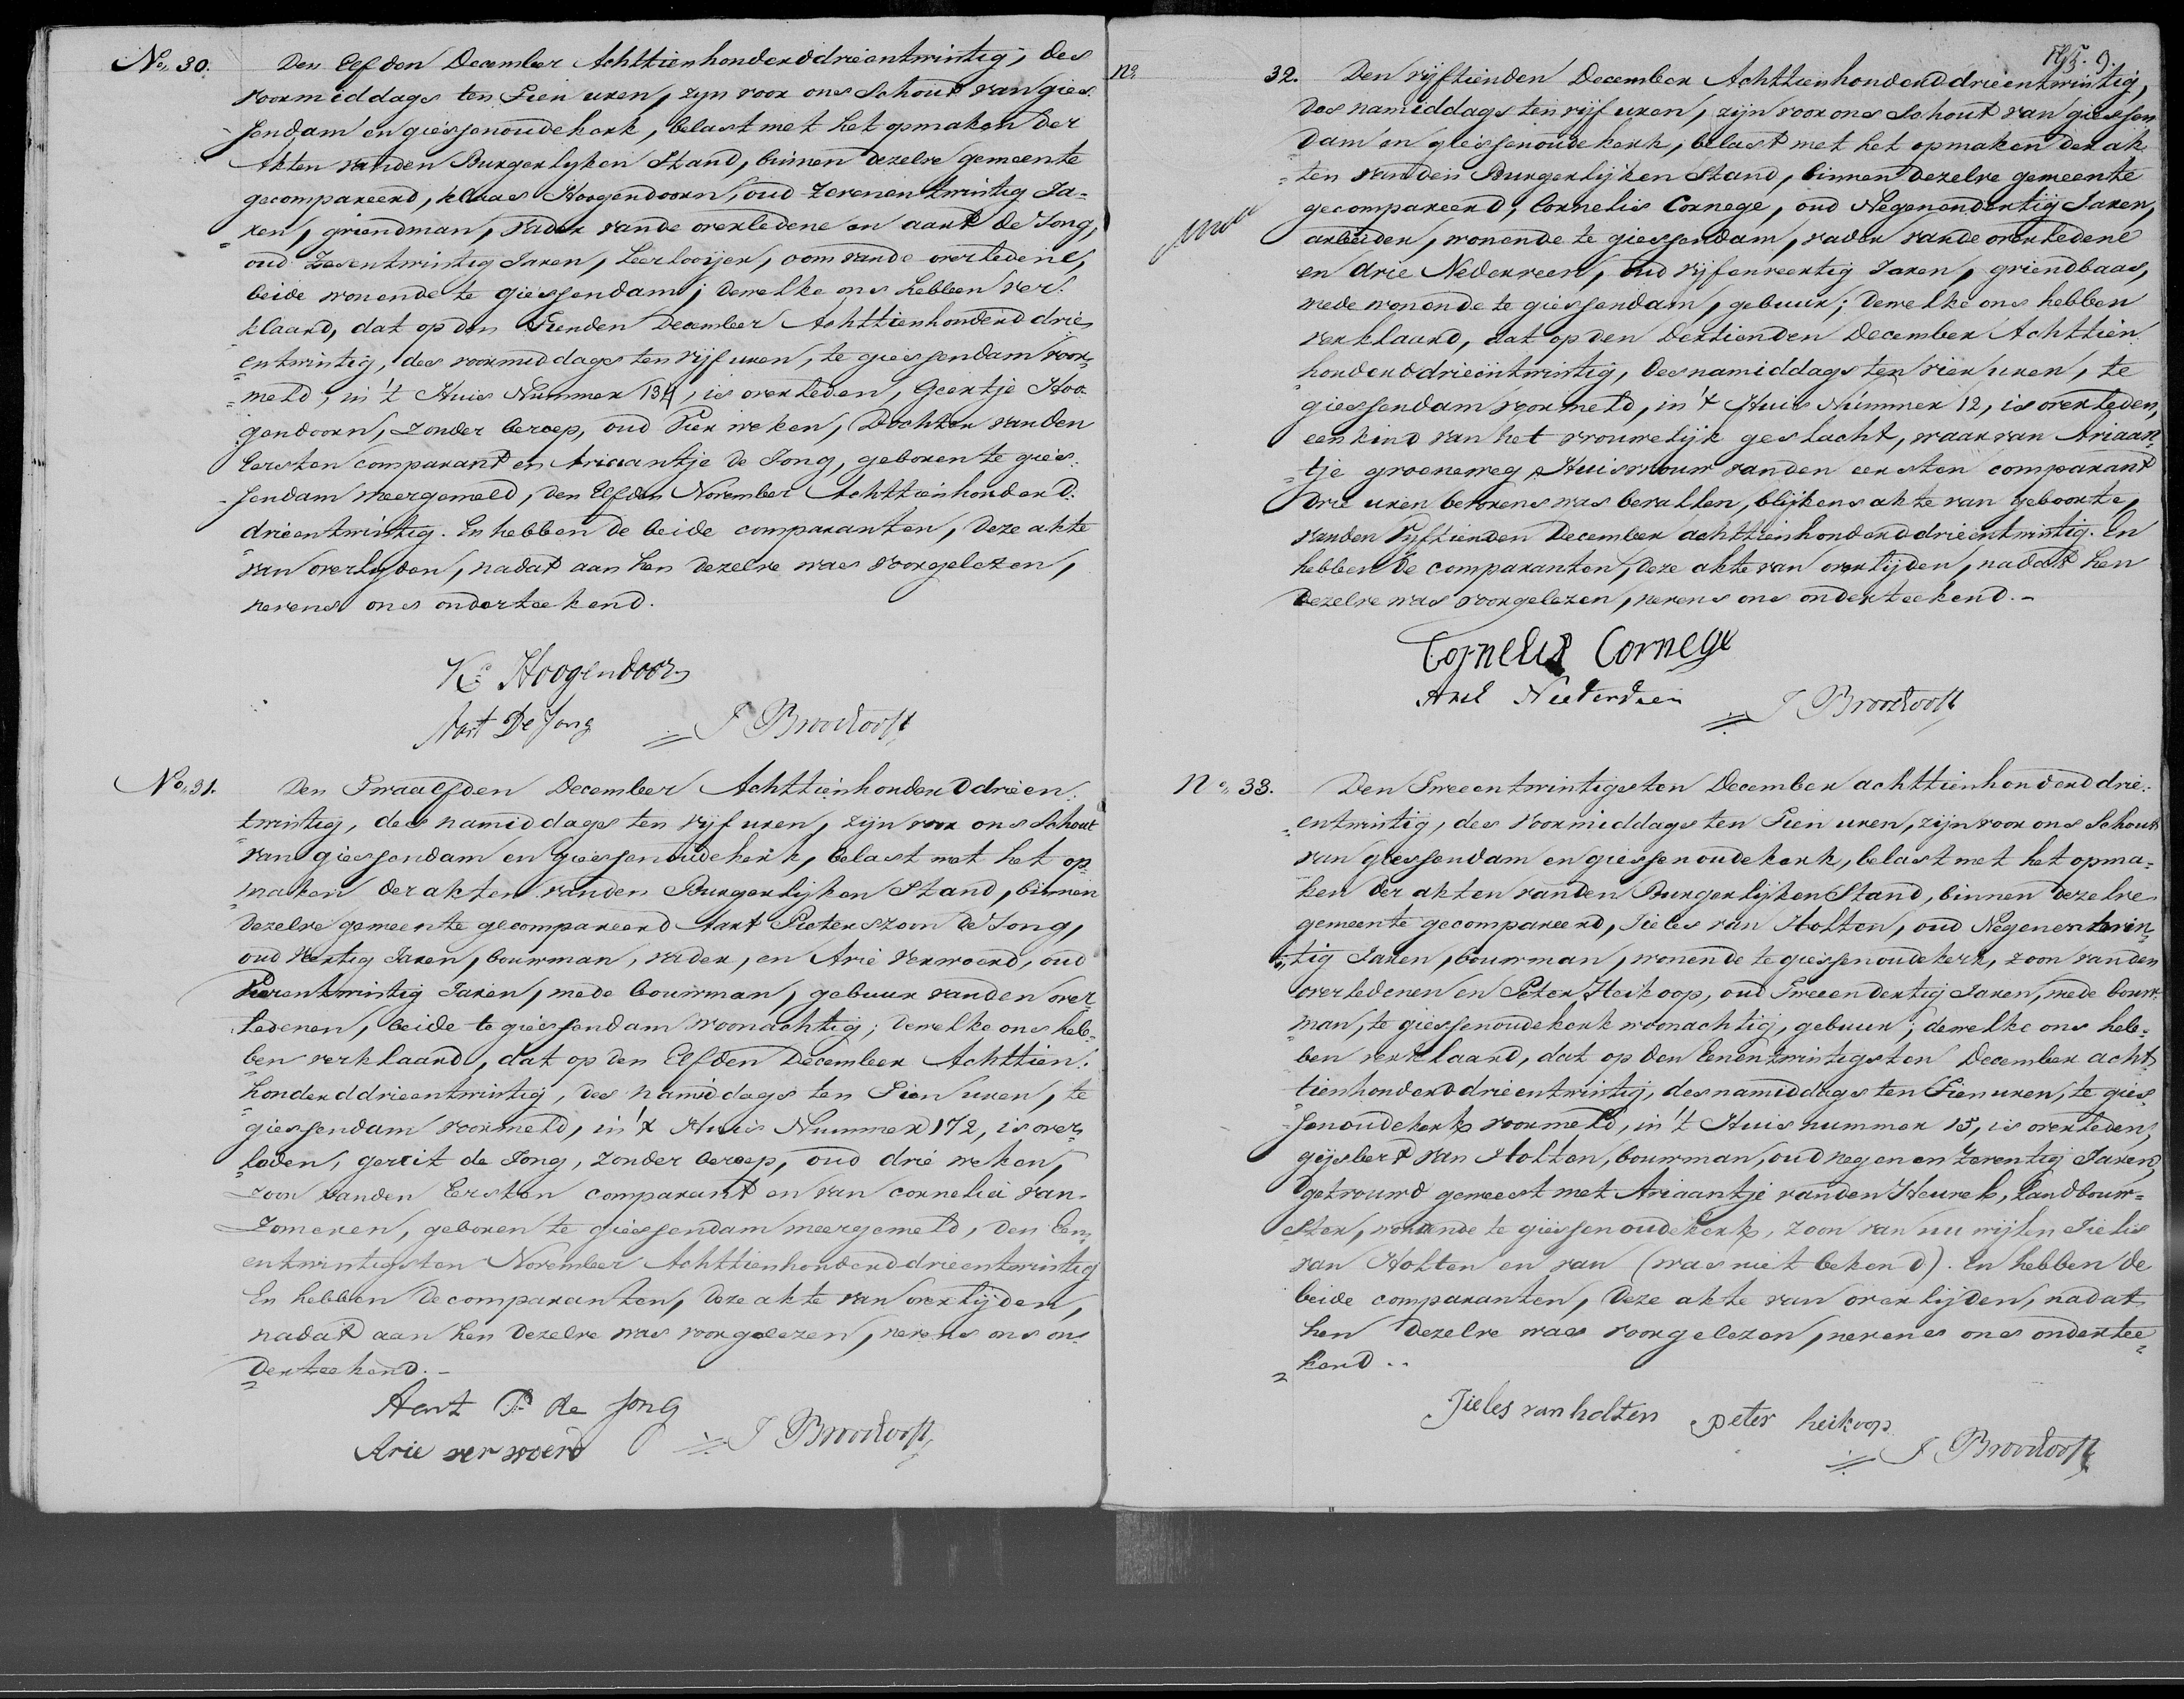 No. 30. Den Elfden December Achttienhonderddrieentwintig, des
voormiddags ten Tien uren, zyn voor ons Schout van gies
sendam en giessenoudekerk, belast met het opmaken der
Akten vanden Burgerlyken Stand, binnen dezelve gemeente
gecompareerd, klaas Hoogendoorn, oud Zevenentwintig Ja-
ren, griendman, vader vande overledene en aart de Jong,
oud Zesentwintig Jaren, Leerlooijer, oom vande overledene,
beide wonende te giessendam; dewelke ons hebben ver-
klaard, dat op den Tienden December Achttienhonderd drie
entwintig, des voormiddags ten vijf uren, te giessendam voor-
meld, in 't Huis Nummer 134, is overleden, Geertje Hoo-
gendoorn, zonder beroep, oud Vier weken, Dochter vanden
Eersten comparant en Ariaantje de Jong, geboren te gies-
sendam meergemeld, den Elfden November Achttienhonderd-
drieentwintig. En hebben de beide comparanten, deze akte
van overlyden, nadat aan hen dezelve was voorgelezen,
nevens ons onderteekend.
Ks Hoogendoorn
Aart De Jong J Broodtooft
No. 31. Den Twaalfden December Achttienhonderddrieen-
twintig, des namiddags ten vijf uren, zijn voor ons Schout
van giessendam en giessenoudekerk, belast met het op-
maken der akten vanden Burgerlijken Stand, binnen
dezelve gemeente gecompareerd Aart Pieterszoon de Jong,
oud veertig Jaren, bouwman, vader, en Arie Verwoerd, oud
Vierentwintig Jaren, mede bouwman, gebuur vanden over
ledenen, beide te giessendam woonachtig; dewelke ons heb-
ben verklaard, dat op den Elfden December Achttien-
honderddrieentwintig, des namiddags ten Tien uren, te
giessendam voormeld, in 't Huis Nummer 172, is over-
leden, gerrit de Jong, zonder beroep, oud drie weken,
zoon vanden Eersten comparant en van cornelia van
Zomeren, geboren te giessendam meergemeld, den Een
entwintigsten November Achttienhonderddrieentwintig
En hebben de comparanten, deze akte van overlijden,
nadat aan hen dezelve was voorgelezen, nevens ons on-
derteekend.-
Aart P. de Jong
Arie verwoerd J Broodtooft
9.
no 32. Den vijftienden December Achttienhonderddrieentwintig,
des namiddags ten vijf uren, zijn voor ons Schout van giessen
dam en giessenoudekerk, belast met het opmaken der ak-
ten van den Burgerlijken Stand, binnen dezelve gemeente
gecompareerd, Cornelis Cornege, oud Negenendertig Jaren,
arbeider, wonende te giessendam, vader vande overledene
en Arie Nederveen, oud vijfenveertig Jaren, griendbaas,
mede wonende te giessendam, gebuur; dewelke ons hebben
verklaard, dat op den dertienden December Achttien-
honderddrieëntwintig, des namiddags ten vier uren, te
giessendam voormeld, in 't Huis Nummer 12, is overleden,
een kind van het vrouwelijk geslacht, waarvan Ariaan-
tje groeneweg, Huisvrouw vanden eersten comparant
drie uren bevorens was bevallen, blijkens akte van geboorte,
vanden Vijftienden December achttienhonderddrieentwintig. En
hebben de comparanten, deze akte van overlijden, nadat hen
dezelve was voorgelezen, nevens ons onderteekend.-
Cornelis Cornege
J Broodtooft
No. 33. Den Tweeentwintigsten December achttienhonderddrie-
entwintig, des voormiddags ten Tien uren, zijn voor ons Schout
van giessendam en giessenoudekerk, belast met het opma-
ken der akten vanden Burgerlijken Stand, binnen dezelve
gemeente gecompareerd, Jieles van Holten, oud Negenentwin-
tig Jaren, bouwman, wonende te giessenoudekerk, zoon vanden
overledenen en Peter Heikoop, oud Tweeendertig Jaren, mede bouw-
man, te giessenoudekerk woonachtig, gebuur; dewelke ons heb-
ben verklaard, dat op den Eenentwintigsten December acht
tienhonderddrieentwintig, des namiddags ten Tien uren, te gies-
senoudekerk voormeld, in 't Huis nummer 15, is overleden,
gijsbert van Holten, bouwman, oud negenenzeventig Jaren,
getrouwd geweest met Ariaantje vanden Heuvel, Landbouw-
ster, wonende te giessenoudekerk, zoon van nu wijlen Jielis
van Holten en van (was niet bekend). En hebben de
beide comparanten, deze akte van overlijden, nadat
hen dezelve was voorgelezen, nevens ons ondertee-
kend..
Jieles van holten peter heikoop
J Broodtooft